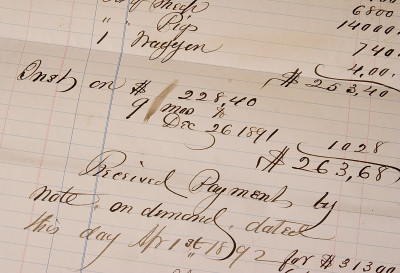 Sheep 6800
" Pigs 14000
1 Waggon 740
4,00
$ 253,40
Inst on $ 228,40
9 mos
Dec 26 1891
1028
$ 263,68
Received Payment by
note, on demand, dated
this day Apr 1st 1892
for $ 31300